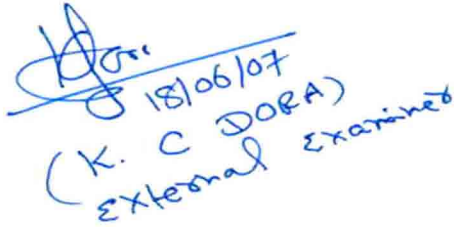 18/06/07
(K. C DORA)
External Examiner